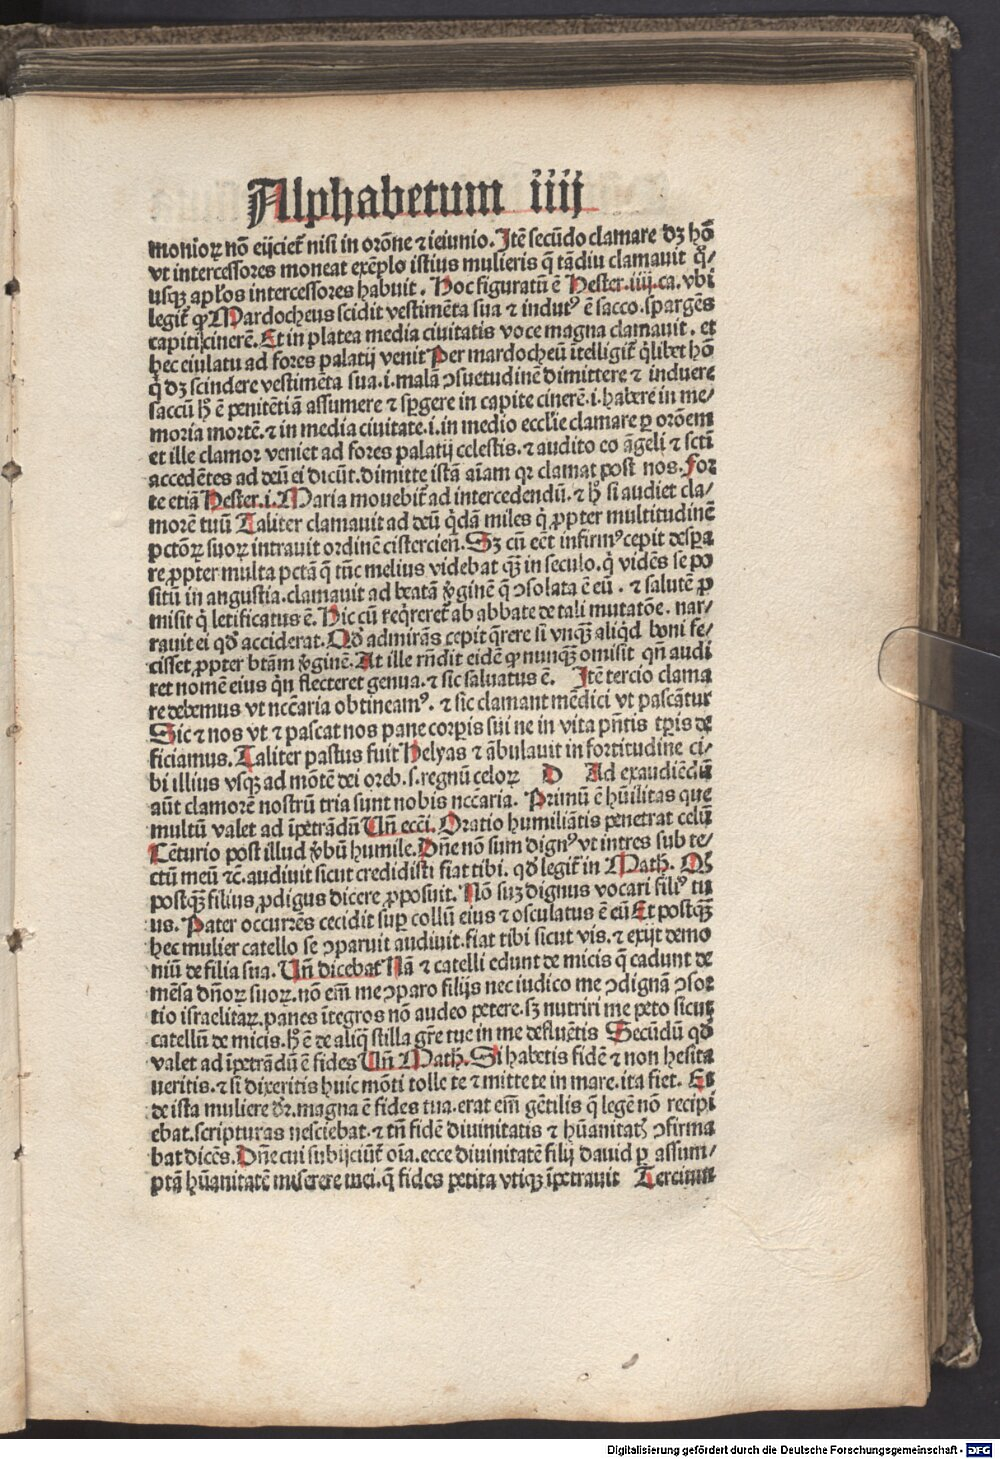 Alphabetum iiij
monioꝝ nō eijciet᷑ nisi in orōne ⁊ ieiunio. Itē secūdo clamare dꝫ hō
vt intercessores moneat exēplo istius mulieris q̄ tādiu clamauit qͦ/
usqꝫ apłos intercessores habuit. Hoc figuratū ē Hester .iiij. ca. vbi
legit᷑ ꝙ Mardocheus scidit vestimēta sua ⁊ indutꝰ ē sacco. spargēs
capiti cinerē. Et in platea media ciuitatis voce magna clamauit. et
hec eiulatu ad fores palatij venit Per mardocheū ītelligit᷑ qͥlibet hō
qͥ dꝫ scindere vestimēta sua .i. malā ↄsuetudinē dimittere ⁊ induere
saccū hͦ ē penitētiā assumere ⁊ spͣgere in capite cinerē .i. habere in me/
moria mortē. ⁊ in media ciuitate .i. in medio eccl'ie clamare ꝑ orōem
et ille clamor veniet ad fores palatij celestis. ⁊ audito eo āgeli ⁊ sctī
accedētes ad deū ei dicūt. dimitte istā aīam qꝛ clamat post nos. For
te etiā Hester .i. Maria mouebit᷑ ad intercedendū. ⁊ hͦ si audiet cla/
morē tuū Taliter clamauit ad deū qͥdā miles qͥ ꝓpter multitudinē
pctōꝝ suoꝝ intrauit ordinē cistercien̄. Sꝫ cū eēt infirmꝰ cepit despa
re ꝓpter multa pctā q̄ tūc melius videbat qꝫ in seculo. qͥ vidēs se po
sitū in angustia. clamauit ad beatā v̓ginē q̄ ↄsolata ē eū. ⁊ salutē ꝓ
misit qͥ letificatus ē. Hic cū reqͥreret᷑ ab abbate de tali mutatōe. nar/
rauit ei qd̄ acciderat. Qd̄ admirās cepit q̄rere si vnqꝫ aliqͥd boni fe/
cisset ꝓpter btām v̓ginē. At ille rn̄dit eidē ꝙ nunqꝫ omisit qn̄ audi
ret nomē eius qͥn flecteret genua. ⁊ sic saluatus ē. Itē tercio clama
re debemus vt nccēaria obtineamꝰ. ⁊ sic clamant mēdici vt pascātur
Sic ⁊ nos vt ⁊ pascat nos pane corpis sui ne in vita pn̄tis tp̄is de
ficiamus. Taliter pastus fuit Helyas ⁊ ābulauit in fortitudine ci/
bi illius vsqꝫ ad mōtē dei oreb. s. regnū celoꝝ D Ad exaudiēdū
aūt clamorē nostrū tria sunt nobis nccēaria. Primū ē hūilitas que
multū valet ad īpetrādū Un̄ ecci. Oratio humiliātis penetrat celū
Cēturio post illud v̓bū humile. Dn̄e nō sum dignꝰ vt intres sub te/
ctū meū ⁊c̄. audiuit sicut credidisti fiat tibi. qd̄ legit᷑ in Math. Qz
postqꝫ filius ꝓdigus dicere ꝓposuit. Nō suꝫ dignus vocari filiꝰ tu
us. Pater occurrēs cecidit suꝑ collū eius ⁊ osculatus ē eū Et postqꝫ
hec mulier catello se ↄparuit audiuit. fiat tibi sicut vis. ⁊ exijt demo
niū de filia sua. Un̄ dicebat᷑ Nā ⁊ catelli edunt de micis q̄ cadunt de
mēsa dn̄oꝝ suoꝝ. nō eīm me ↄparo filijs nec iudico me ↄdignā ↄsor
tio israelitaꝝ. panes ītegros nō audeo petere. sꝫ nutriri me peto sicut
catellū de micis. hͦ ē de aliqͣ stilla gr̄e tue in me defluētis Secūdū qd̄
valet ad īpetrādū ē fides Un̄ Math. Si habetis fidē ⁊ non hesita
ueritis. ⁊ si dixeritis huic mōti tolle te ⁊ mitte te in mare. ita fiet. Et
de ista muliere dr̄. magna ē fides tua. erat eīm gētilis q̄ legē nō recipi
ebat. scripturas nesciebat. ⁊ tn̄ fidē diuinitatis ⁊ hūanitatꝭ ↄfirma
bat dicēs. Dn̄e cui subijciūt᷑ oīa. ecce diuinitatē filij dauid ꝑ assum/
ptā hūanitatē miserere mei. q̄ fides petita vtiqꝫ īpetrauit Tercium
Digitalisierung gefördert durch die Deutsche Forschungsgemeinschaft - DFG